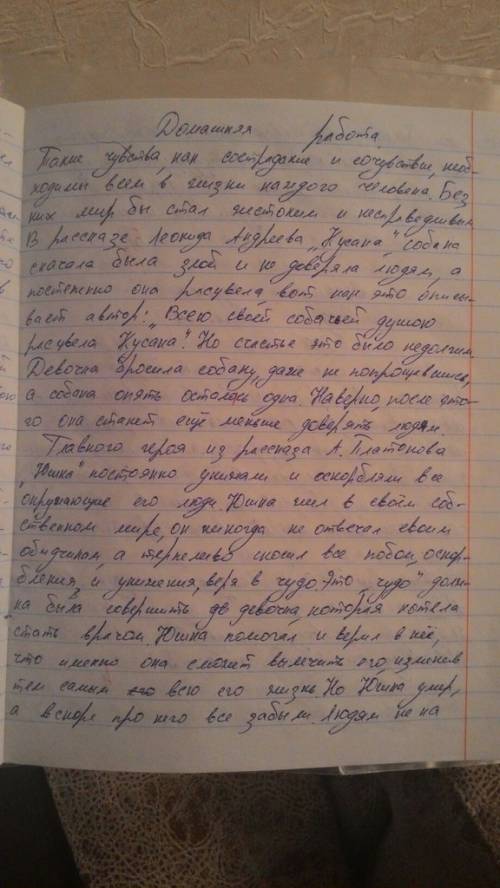 Домашняя работа
Такие чувства, как сострадание и сочувствие, необ-
ходимы всем в жизни каждого человека. Без
них мир бы стал жестоким и несправедливым
В рассказе Леонида Андреева „Кусака", собака
сначала была злой и не доверяла людям, а
постепенно она расцвела, вот как это описы-
вает автор: „Всею своей собачьей душою
расцвела Кусака". Но счастье это было недолгим
Девочка бросила собаку, даже не попрощавшись,
а собака опять осталась одна. Наверно, после это-
го она станет ещё меньше доверять людям.
Главного героя из рассказа А. Платонова
„Юшка" постоянно унижали и оскорбляли все
окружающие его люди. Юшка жил в своём соб-
ственном мире, он никогда не отвечал своим
обидчикам, а терпеливо сносил все побои, оскор-
бления, и унижения, веря в чудо. Это „чудо" долж-
на была совершить девочка, которая хотела
стать врачом. Юшка помогал и верил в неё,
что именно она сможет вылечить его изменив
тем самым всю его жизнь. Но Юшка умер,
а вскоре про него все забыли. Людям не на